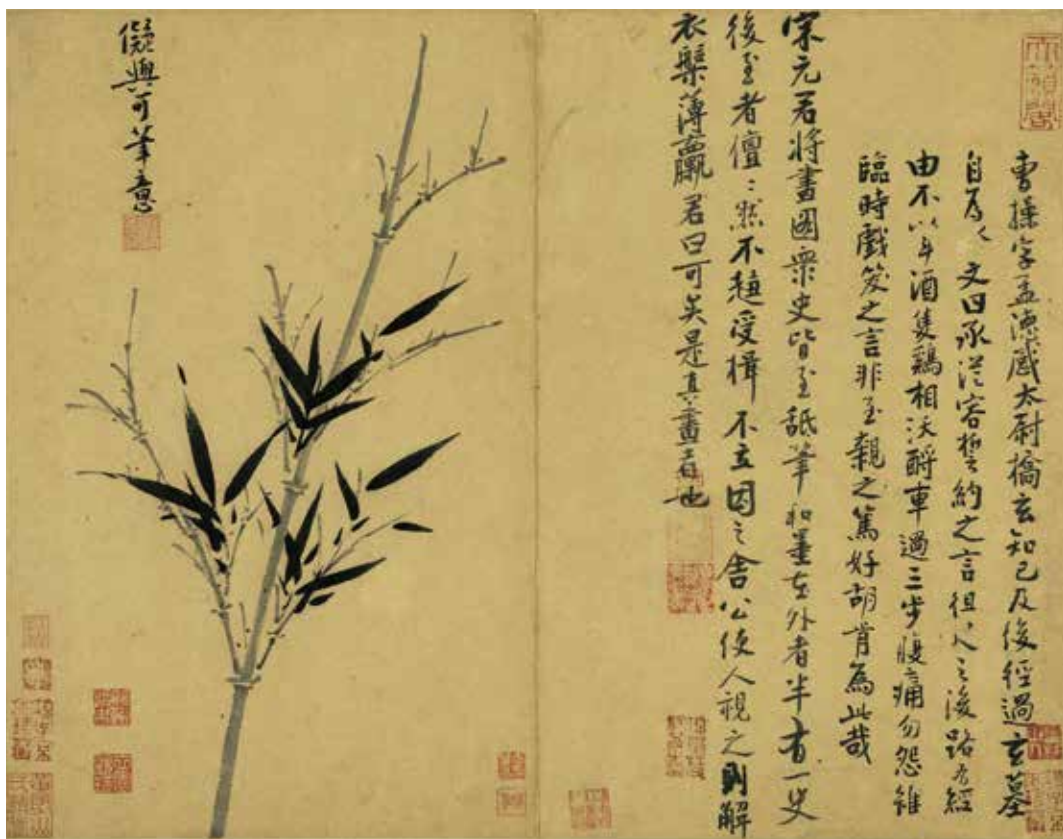 天籟閣
曹操字孟德感太尉橋玄知己及後經過玄墓
自為之文曰承從容誓約之言徂之後路有經
由不以斗酒隻鷄相沃酹車過三步腹痛勿怨雖
臨時戲笑之言非至親之篤好胡肯為此哉
宋元君將畫圖衆史皆至舐筆和墨在外者半有一史
後至者儃〻然不趨受揖不立因之舍公使人視之則解
衣槃薄臝君曰可矣是真畫者也
儗與可筆意